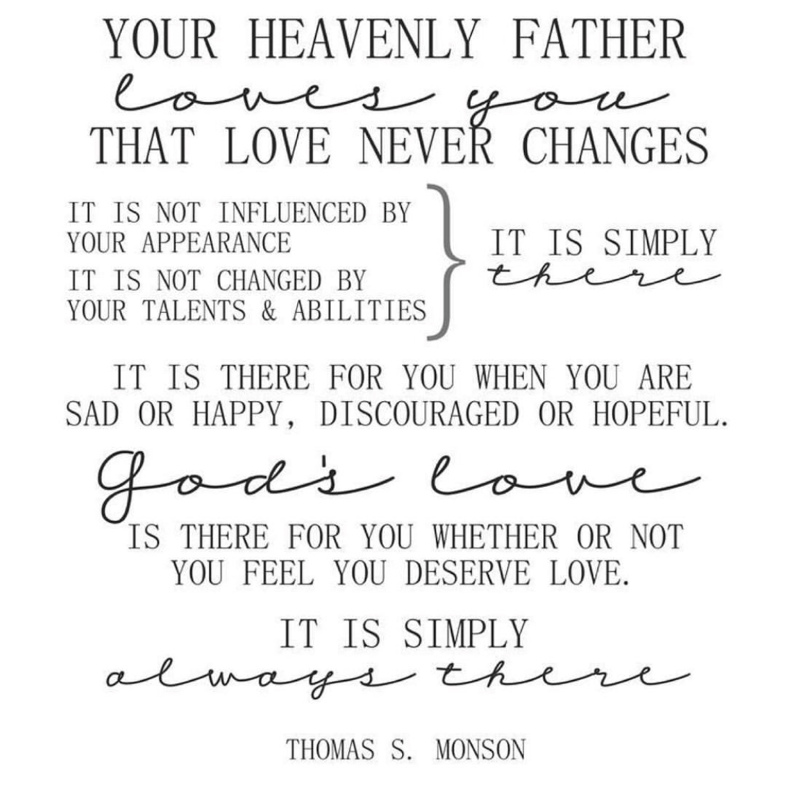 YOUR HEAVENLY FATHER
loves you
THAT LOVE NEVER CHANGES
IT IS NOT INFLUENCED BY
YOUR APPEARANCE
IT IS NOT CHANGED BY
YOUR TALENTS & ABILITIES
IT IS SIMPLY
there
IT IS THERE FOR YOU WHEN YOU ARE
SAD OR HAPPY, DISCOURAGED OR HOPEFUL.
God's love
IS THERE FOR YOU WHETHER OR NOT
YOU FEEL YOU DESERVE LOVE.
IT IS SIMPLY
always there
THOMAS S. MONSON